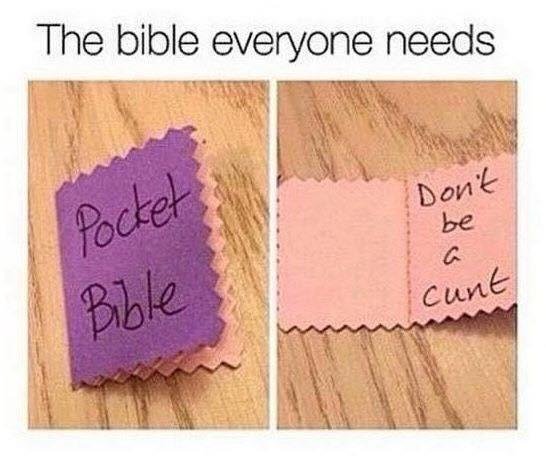 The bible everyone needs
Pocket
Bible
Don't
be
a
cunt